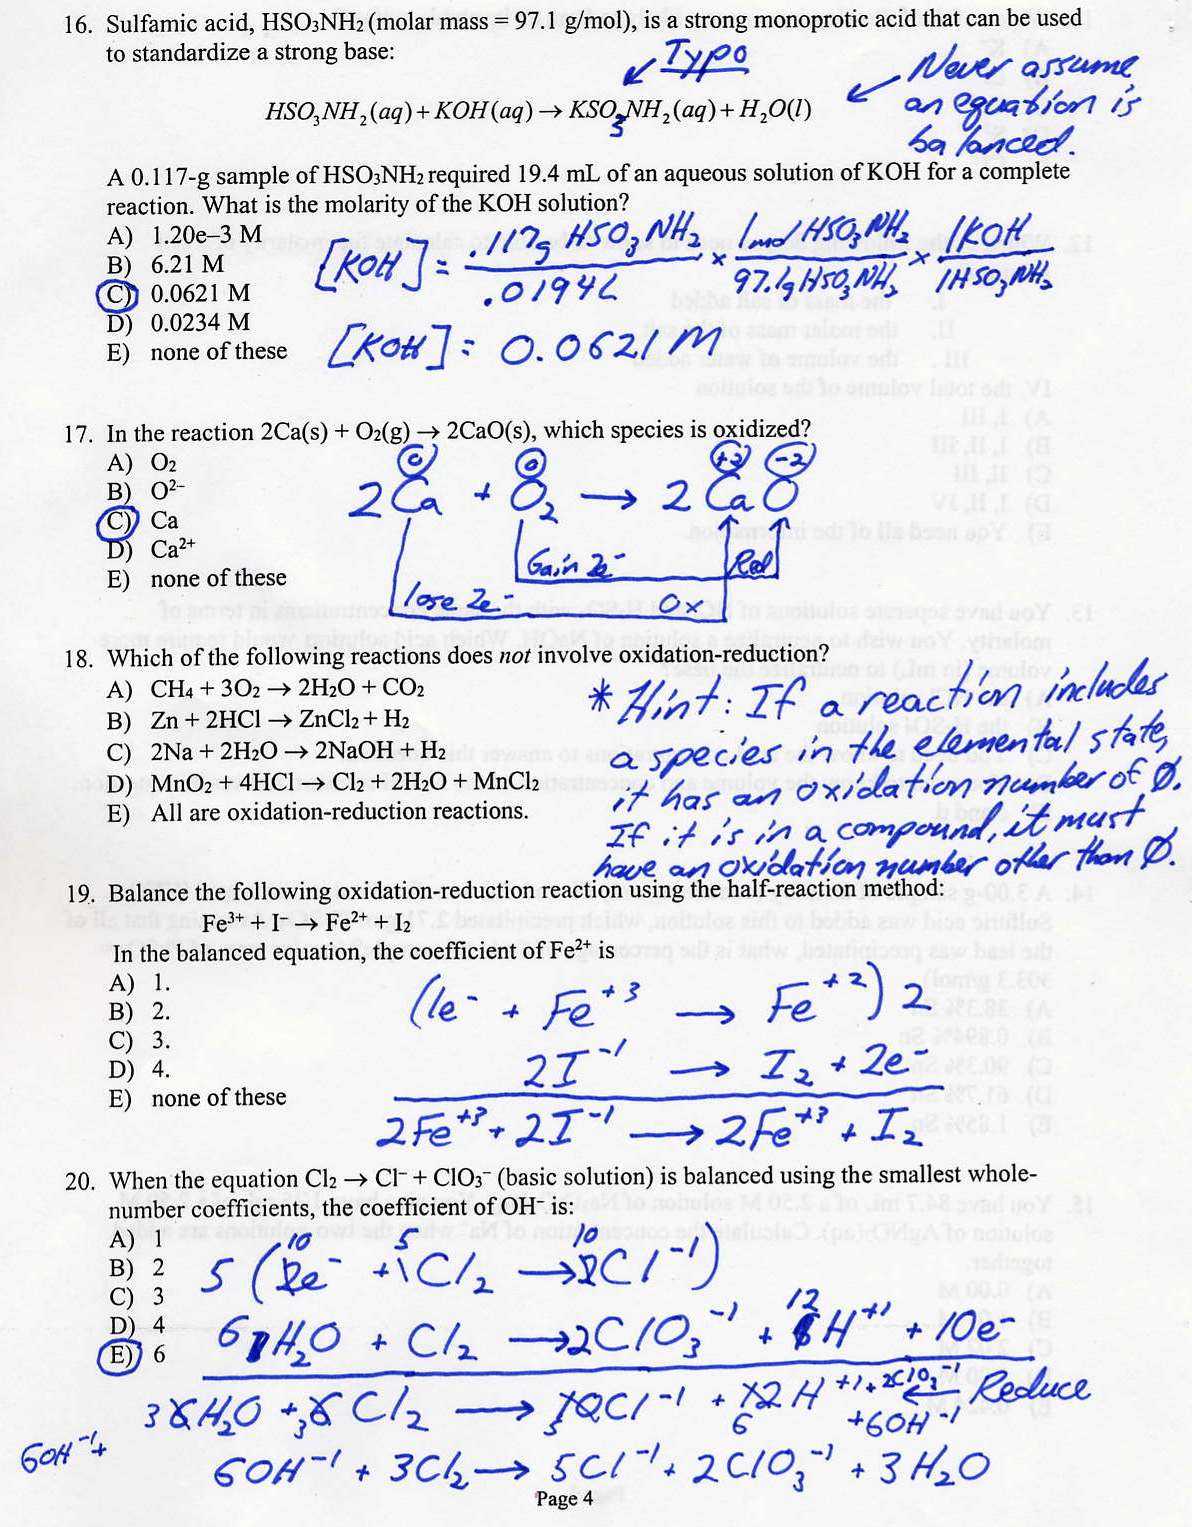 16. Sulfamic acid, HSO3NH2 (molar mass = 97.1 g/mol), is a strong monoprotic acid that can be used
to standardize a strong base:
↙ Typo
← Never assume
an equation is
balanced.
HSO3NH2(aq) + KOH(aq) → KSO3NH2(aq) + H2O(l)
A 0.117-g sample of HSO3NH2 required 19.4 mL of an aqueous solution of KOH for a complete
reaction. What is the molarity of the KOH solution?
A) 1.20e–3 M
B) 6.21 M
C) 0.0621 M
D) 0.0234 M
E) none of these
[KOH] = .117g HSO3NH2 / .0194L × 1mol HSO3NH2 / 97.1g HSO3NH2 × 1KOH / 1HSO3NH2
[KOH] = 0.0621 M
17. In the reaction 2Ca(s) + O2(g) → 2CaO(s), which species is oxidized?
A) O2
B) O2–
C) Ca
D) Ca2+
E) none of these
0 0 +2 -2
2Ca + O2 → 2CaO
Gain 2e- Red
lose 2e- Ox
18. Which of the following reactions does not involve oxidation-reduction?
A) CH4 + 3O2 → 2H2O + CO2
B) Zn + 2HCl → ZnCl2 + H2
C) 2Na + 2H2O → 2NaOH + H2
D) MnO2 + 4HCl → Cl2 + 2H2O + MnCl2
E) All are oxidation-reduction reactions.
* Hint: If a reaction includes
a species in the elemental state,
it has an oxidation number of Ø.
If it is in a compound, it must
have an oxidation number other than Ø.
19. Balance the following oxidation-reduction reaction using the half-reaction method:
Fe3+ + I– → Fe2+ + I2
In the balanced equation, the coefficient of Fe2+ is
A) 1.
B) 2.
C) 3.
D) 4.
E) none of these
(1e- + Fe+3 → Fe+2) 2
2I-1 → I2 + 2e-
2Fe+3 + 2I-1 → 2Fe+3 + I2
20. When the equation Cl2 → Cl– + ClO3– (basic solution) is balanced using the smallest whole-
number coefficients, the coefficient of OH– is:
A) 1
B) 2
C) 3
D) 4
E) 6
10 5 10
5 (2e- + 1Cl2 → 2Cl-1)
12
6H2O + Cl2 → 2ClO3-1 + 6H+1 + 10e-
3 6H2O + 3 6Cl2 → 5 10Cl-1 + 12H+1 + 2ClO3-1 ← Reduce
6OH-1 + 6 +6OH-1
6OH-1 + 3Cl2 → 5Cl-1 + 2ClO3-1 + 3H2O
Page 4